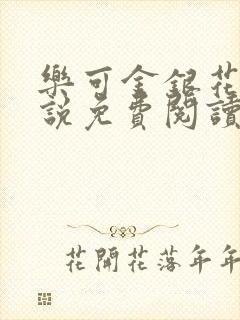 樂可金銀花
說免費閱讀
花開花落年年